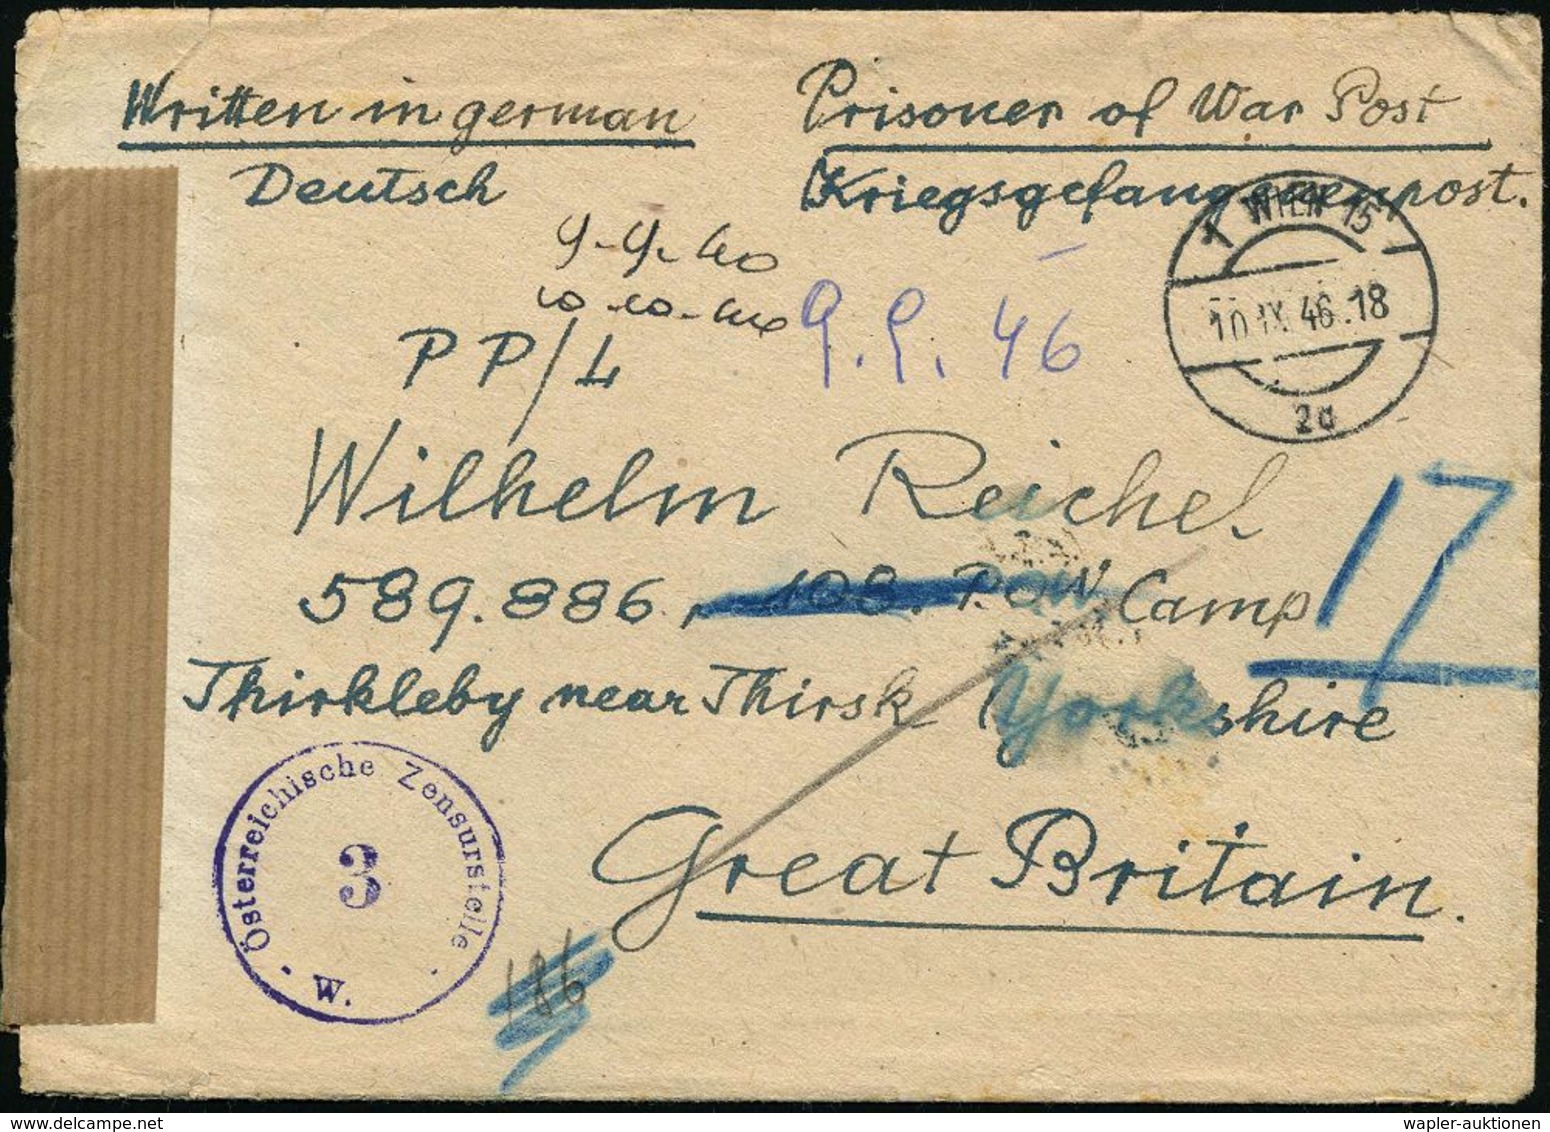 Written in german
Deutsch
Prisoner of War Post
Kriegsgefangenenpost.
1 WIEN 15
10.IX.46.18
2d
9.9.46
PP/L
Wilhelm Reichel
589.886, 108. P.O.W. Camp
17
Thirkleby near Thirsk Yorkshire
Great Britain.
Österreichische Zensurstelle
3
W.
186
wapler-auktionen